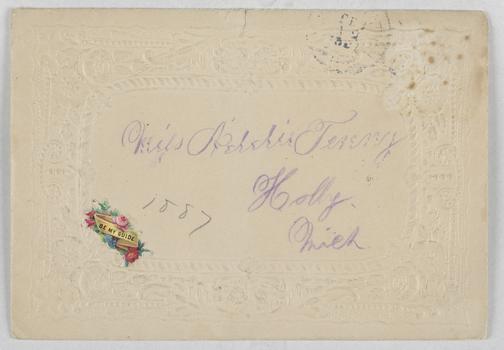 Miss Addie Tenny
Holly.
Mich
1887
BE MY GUIDE